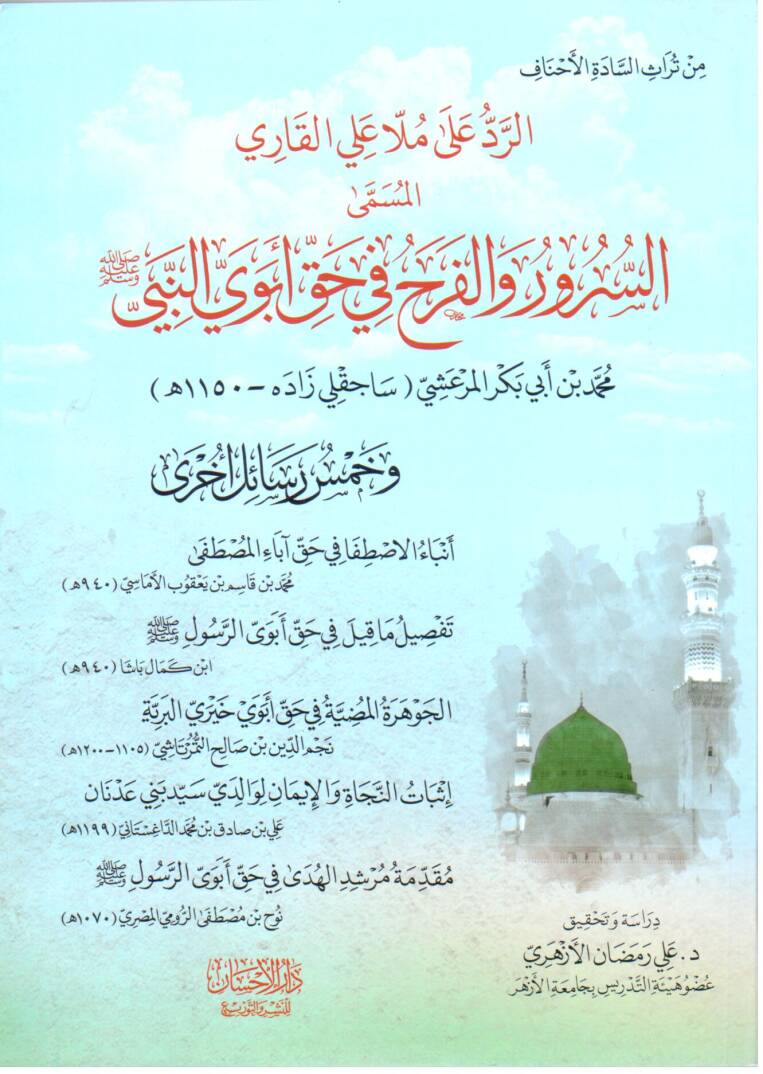 مِنْ تُرَاثِ السَّادَةِ الأَحْنَافِ
الرَّدُّ عَلَى مُلّا عَلِي القَارِي
المُسَمَّى
السُّرُورُ وَالفَرَحُ فِي حَقِّ أَبَوَيِ النَّبِيِّ ﷺ
مُحَمَّد بْن أَبِي بَكْر المَرْعَشِيّ (سَاجَقْلِي زَادَه - ١١٥٠هـ)
وَخَمْسُ رَسَائِل أُخْرَى
أَنْبَاءُ الاصْطِفَا فِي حَقِّ آبَاءِ المُصْطَفَى
مُحَمَّد بْن قَاسِم بْن يَعْقُوب الأَمَاسِيّ (٩٤٠هـ)
تَفْصِيلُ مَا قِيلَ فِي حَقِّ أَبَوَيِ الرَّسُولِ ﷺ
ابْن كَمَال بَاشَا (٩٤٠هـ)
الجَوْهَرَةُ المُضِيَّةُ فِي حَقِّ أَبَوَيْ خَيْرِي البَرِيَّةِ
نَجْم الدِّين بْن صَالِح التُّمُرْتَاشِيّ (١١٠٥-١٢٠٠هـ)
إِثْبَاتُ النَّجَاةِ وَالإِيمَانِ لِوَالِدَيْ سَيِّدِ بَنِي عَدْنَان
عَلِي بْن صَادِق بْن مُحَمَّد الدَّاغِسْتَانِيّ (١١٩٩هـ)
مُقَدِّمَةُ مُرْشِدِ الهُدَى فِي حَقِّ أَبَوَيِ الرَّسُولِ ﷺ
نُوح بْن مُصْطَفَى الرُّومِيّ المِصْرِيّ (١٠٧٠هـ)
دِرَاسَة وَتَحْقِيق
د. عَلِي رَمَضَان الأَزْهَرِيّ
عُضْو هَيْئَةِ التَّدْرِيسِ بِجَامِعَةِ الأَزْهَر
دَارُ الإِحْسَان
لِلنَّشْرِ وَالتَّوْزِيعِ